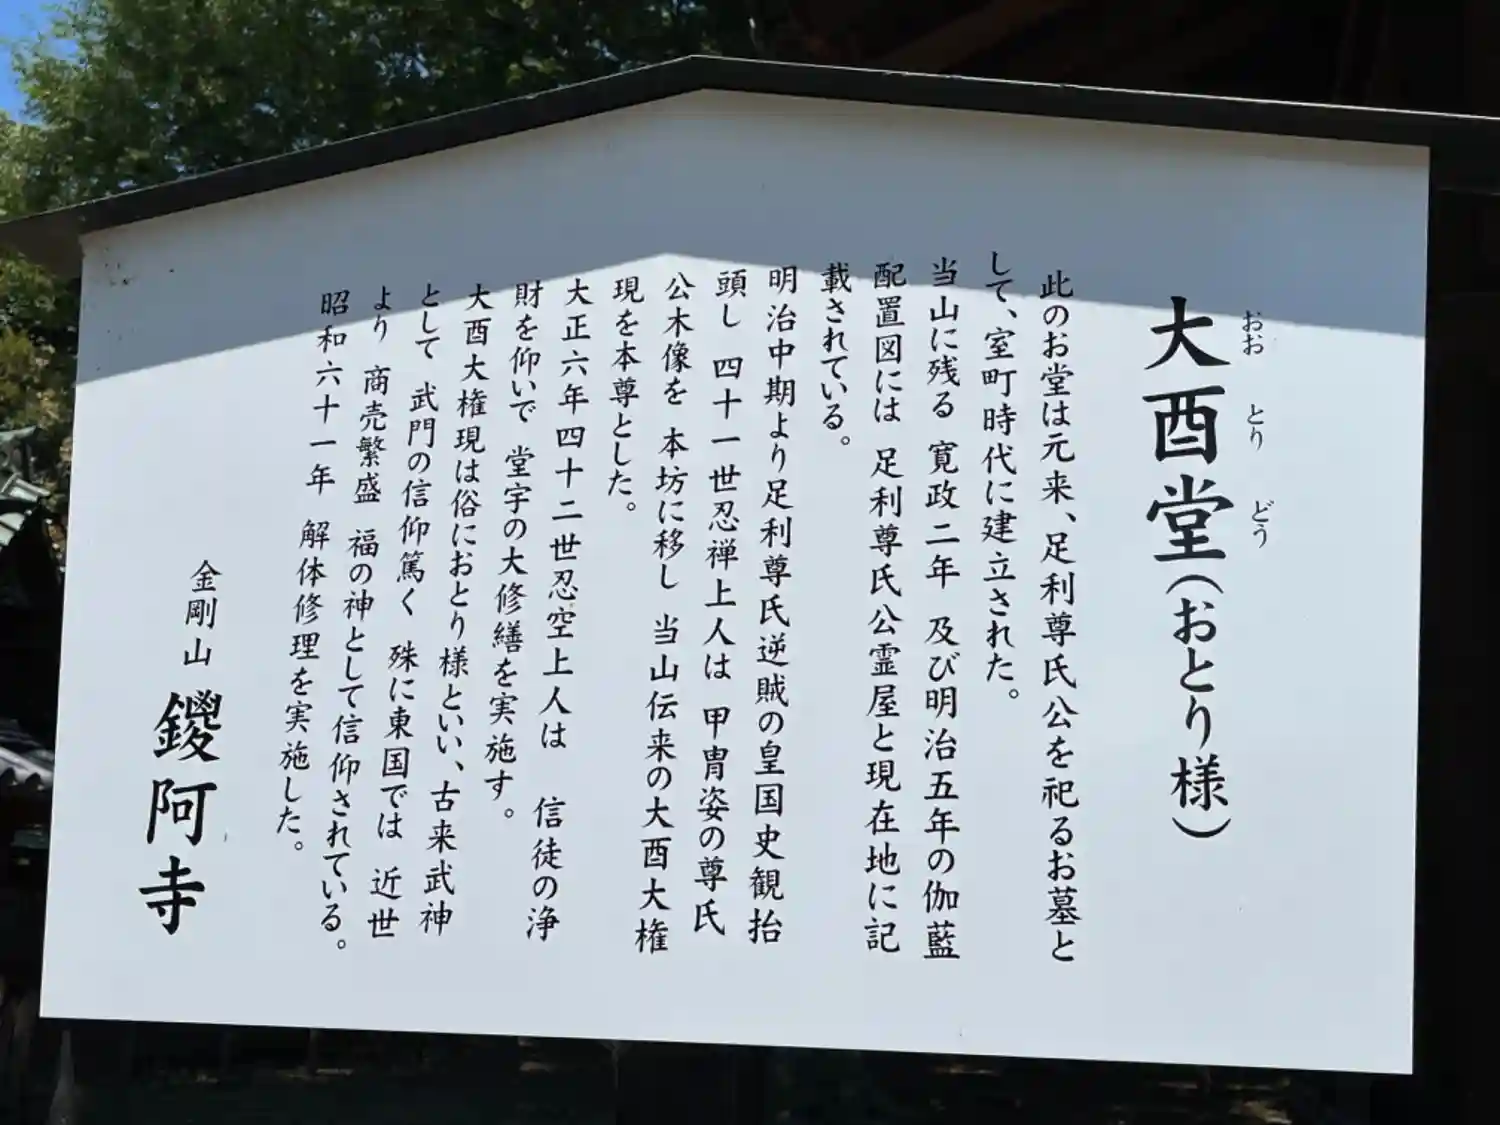 大酉堂(おとり様)
おお とり どう
此のお堂は元来、足利尊氏公を祀るお墓と
して、室町時代に建立された。
当山に残る 寛政二年 及び明治五年の伽藍
配置図には 足利尊氏公霊屋と現在地に記
載されている。
明治中期より足利尊氏逆賊の皇国史観抬
頭し 四十一世忍禅上人は 甲冑姿の尊氏
公木像を 本坊に移し 当山伝来の大酉大権
現を本尊とした。
大正六年四十二世忍空上人は 信徒の浄
財を仰いで 堂宇の大修繕を実施す。
大酉大権現は俗におとり様といい、古来武神
として 武門の信仰篤く 殊に東国では 近世
より 商売繁盛 福の神として信仰されている。
昭和六十一年 解体修理を実施した。
金剛山 鑁阿寺